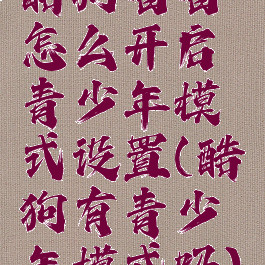 酷狗音音
怎么开启
青少年摸
式设置(酷
狗有青少
年摸式吗)